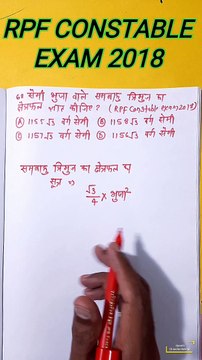 RPF CONSTABLE
EXAM 2018
60 सेमी भुजा वाले समबाहु त्रिभुज का
क्षेत्रफल ज्ञात कीजिए? (RPF Constable exam 2018)
(A) 1155√3 वर्ग सेमी (B) 1158√3 वर्ग सेमी
(C) 1157√3 वर्ग सेमी (D) 1156√3 वर्ग सेमी
समबाहु त्रिभुज का क्षेत्रफल
सूत्र
√3/4 × भुजा²